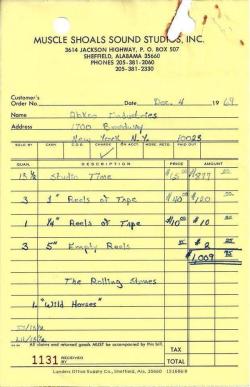 MUSCLE SHOALS SOUND STUDIOS, INC.
3614 JACKSON HIGHWAY, P. O. BOX 507
SHEFFIELD, ALABAMA 35660
PHONES 205-381-2060
205-381-2330
Customer's
Order No. Date Dec. 4 1969
Name Abkco Industries
Address 1700 Broadway
New York N.Y. 10023
SOLD BY CASH C.O.D. CHARGE ON ACCT. MDSE. RETD. PAID OUT
QUAN. DESCRIPTION PRICE AMOUNT
13 1/2 Studio Time $65 00 $877
3 1" Reels of Tape $40 00 $120
1 1/4" Reels of Tape $10 00 $10
3 5" Empty Reels $2
$1,009
The Rolling Stones
1. "Wild Horses"
All claims and returned goods MUST be accompanied by this bill.
1131 RECEIVED BY
TAX
TOTAL
Landers Office Supply Co., Sheffield, Ala.